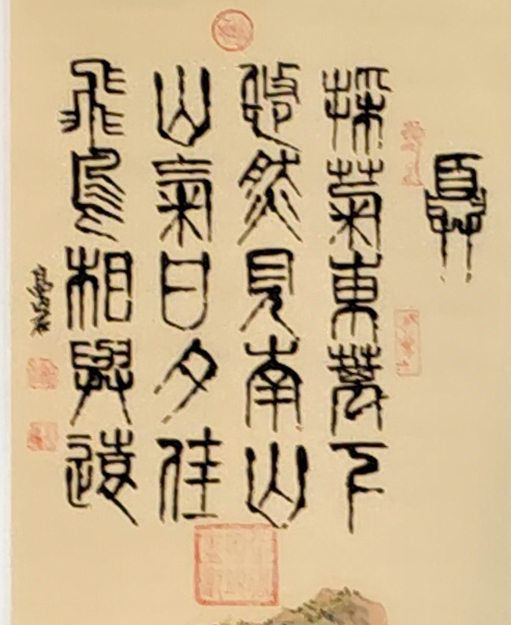 採菊東籬下
悠然見南山
山氣日夕佳
飛鳥相與還